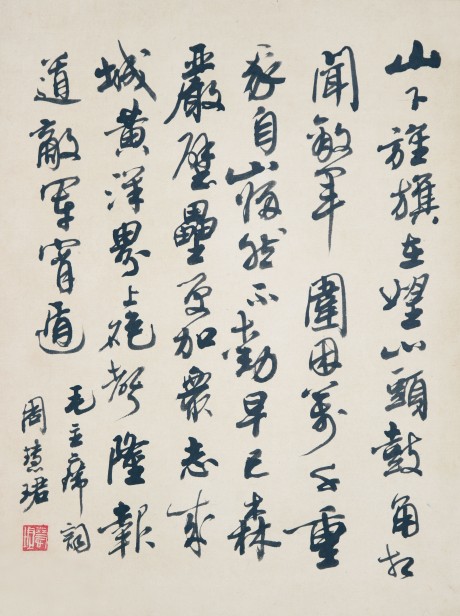 山下旌旗在望山頭鼓角相
聞敵軍圍困萬千重
我自巋然不動早已森
嚴壁壘更加衆志成
城黃洋界上砲聲隆報
道敵軍宵遁
毛主席詞
周慧珺